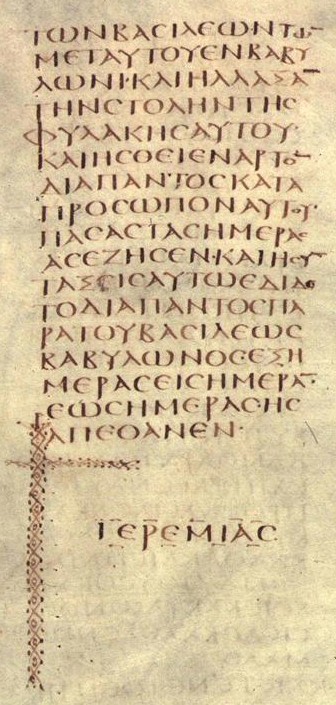 ΤΩΝΒΑCΙΛΕΩΝΤΩ̅
ΜΕΤΑΥΤΟΥΕΝΒΑΒΥ
ΛΩΝΙ·ΚΑΙΗΛΛΑΞΑ̅
ΤΗΝCΤΟΛΗΝΤΗC
ΦΥΛΑΚΗCΑΥΤΟΥ·
ΚΑΙΗCΘΕΙΕΝΑΡΤΟ̅
ΔΙΑΠΑΝΤΟCΚΑΤΑ
ΠΡΟCΩΠΟΝΑΥΤΟΥ·
ΠΑCΑCΤΑCΗΜΕΡΑC
ΑCΕΖΗCΕΝ·ΚΑΙΗCΥ̅
ΤΑΞΕΙCΑΥΤΩΕΔΙΔΟ
ΤΟΔΙΑΠΑΝΤΟCΠΑ
ΡΑΤΟΥΒΑCΙΛΕΩC
ΒΑΒΥΛΩΝΟCΕΞΗ
ΜΕΡΑCΕΙCΗΜΕΡΑ̅
ΕΩCΗΜΕΡΑCΗC
ΑΠΕΘΑΝΕΝ·
ΙΕΡΕΜΙΑC